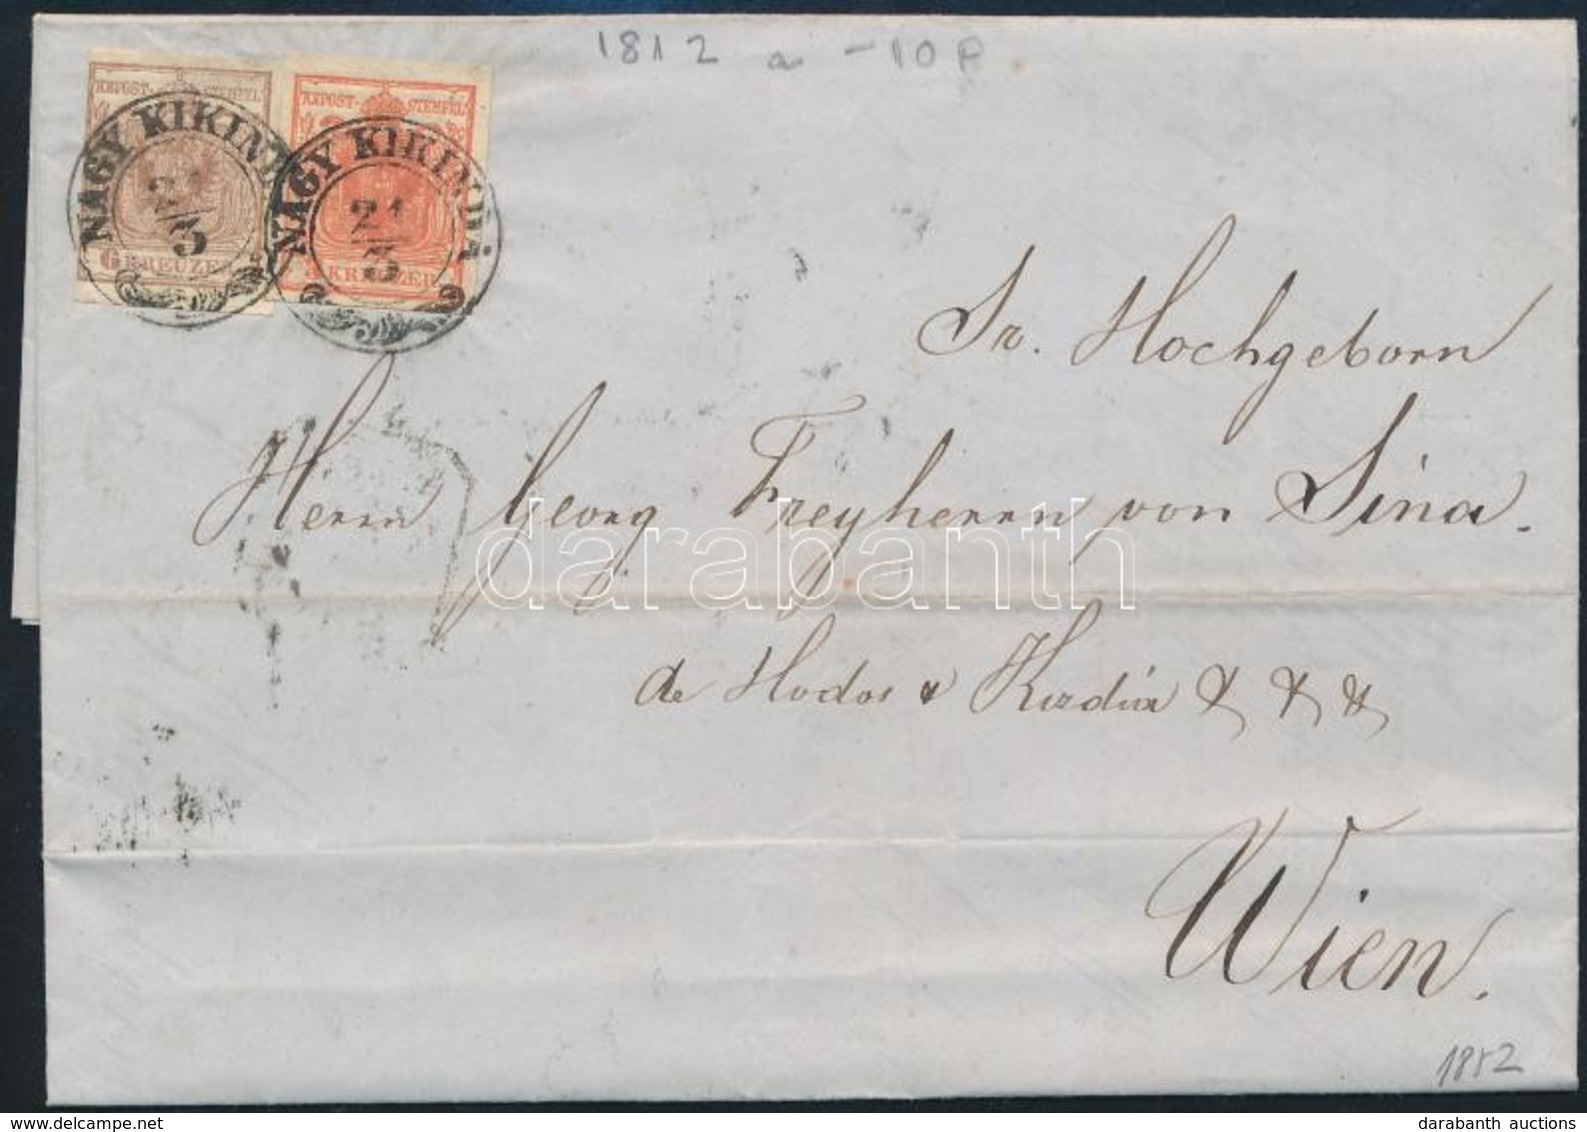 1812 a -10 P
KKPOST-STEMPEL
6 KREUZER
NAGY KIKINDA
21/3
KKPOST-STEMPEL
3 KREUZER
NAGY KIKINDA
21/3
Sr. Hochgeborn
Herrn Georg Freyherrn von Sina.
darabanth
de Hodos & Kizdia & & &
Wien.
1852
darabanth auctions